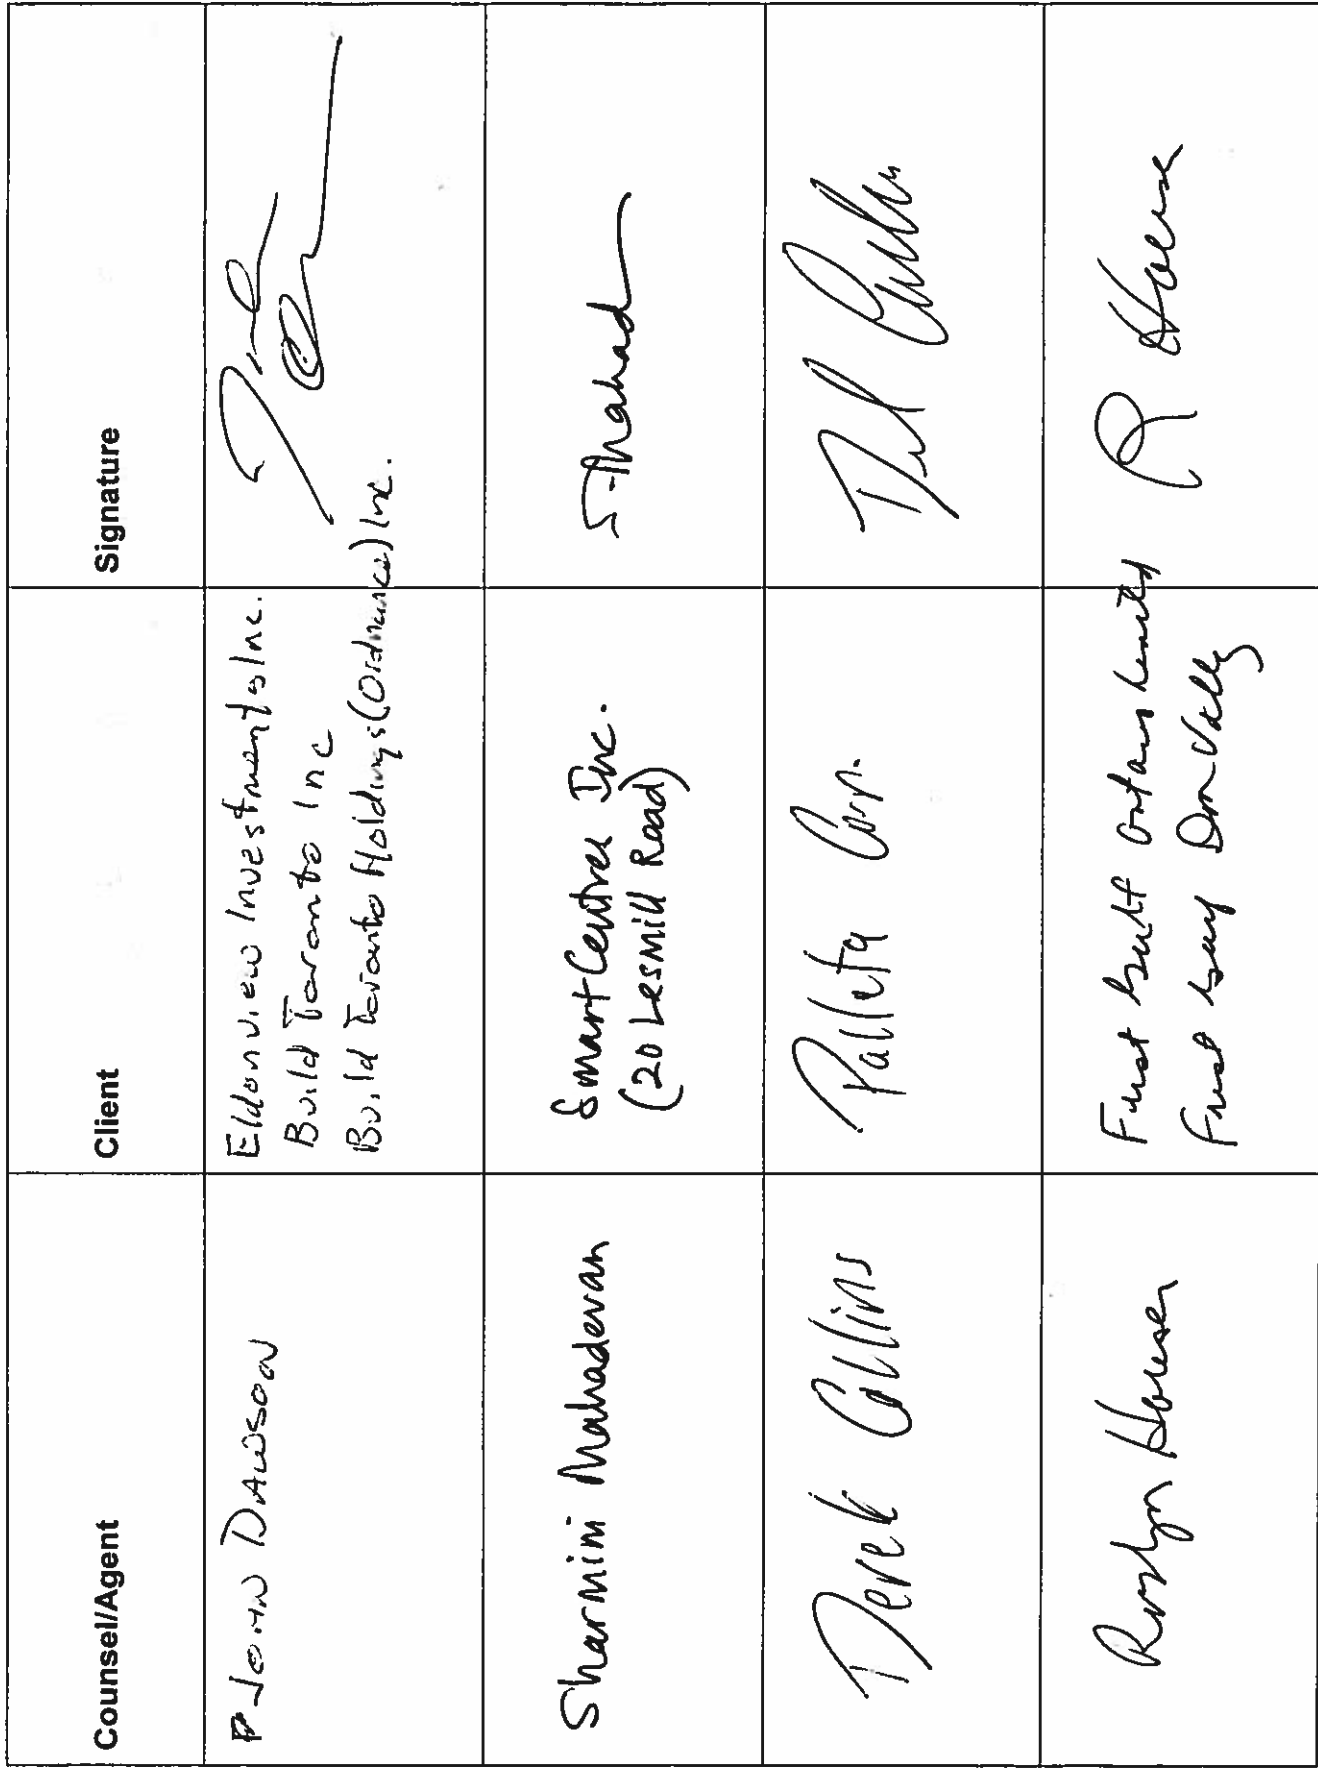 Counsel/Agent
Client
Signature
P John Dawson
Eldonview Investments Inc.
Build Toronto Inc
Build Toronto Holdings (Ordnance) Inc.
Sharmini Mahadevan
SmartCentres Inc.
(20 Lesmill Road)
S. Mahad
Derek Collins
Palleta Corp.
Roslyn Houser
First Gulf Ontario Limited
First Gulf Don Valley
R Houser